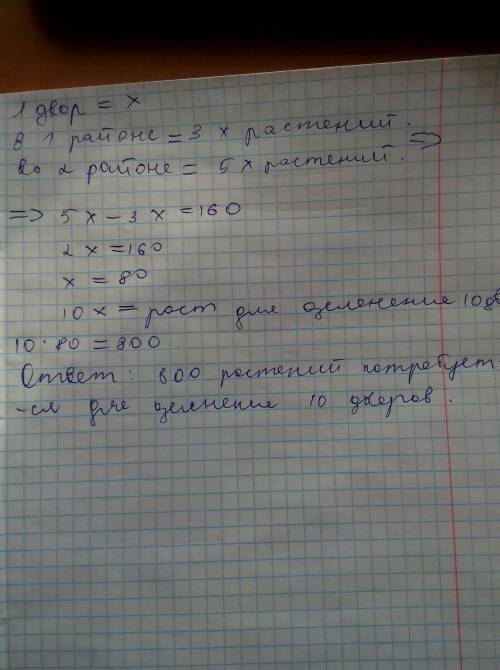 1 двор = x
в 1 районе = 3 x растений.
во 2 районе = 5 x растений. =>
=> 5 x - 3 x = 160
2 x = 160
x = 80
10 x = раст для озеленение 10 дв
10 · 80 = 800
Ответ: 800 растений потребует-
-ся для озеленение 10 дворов.